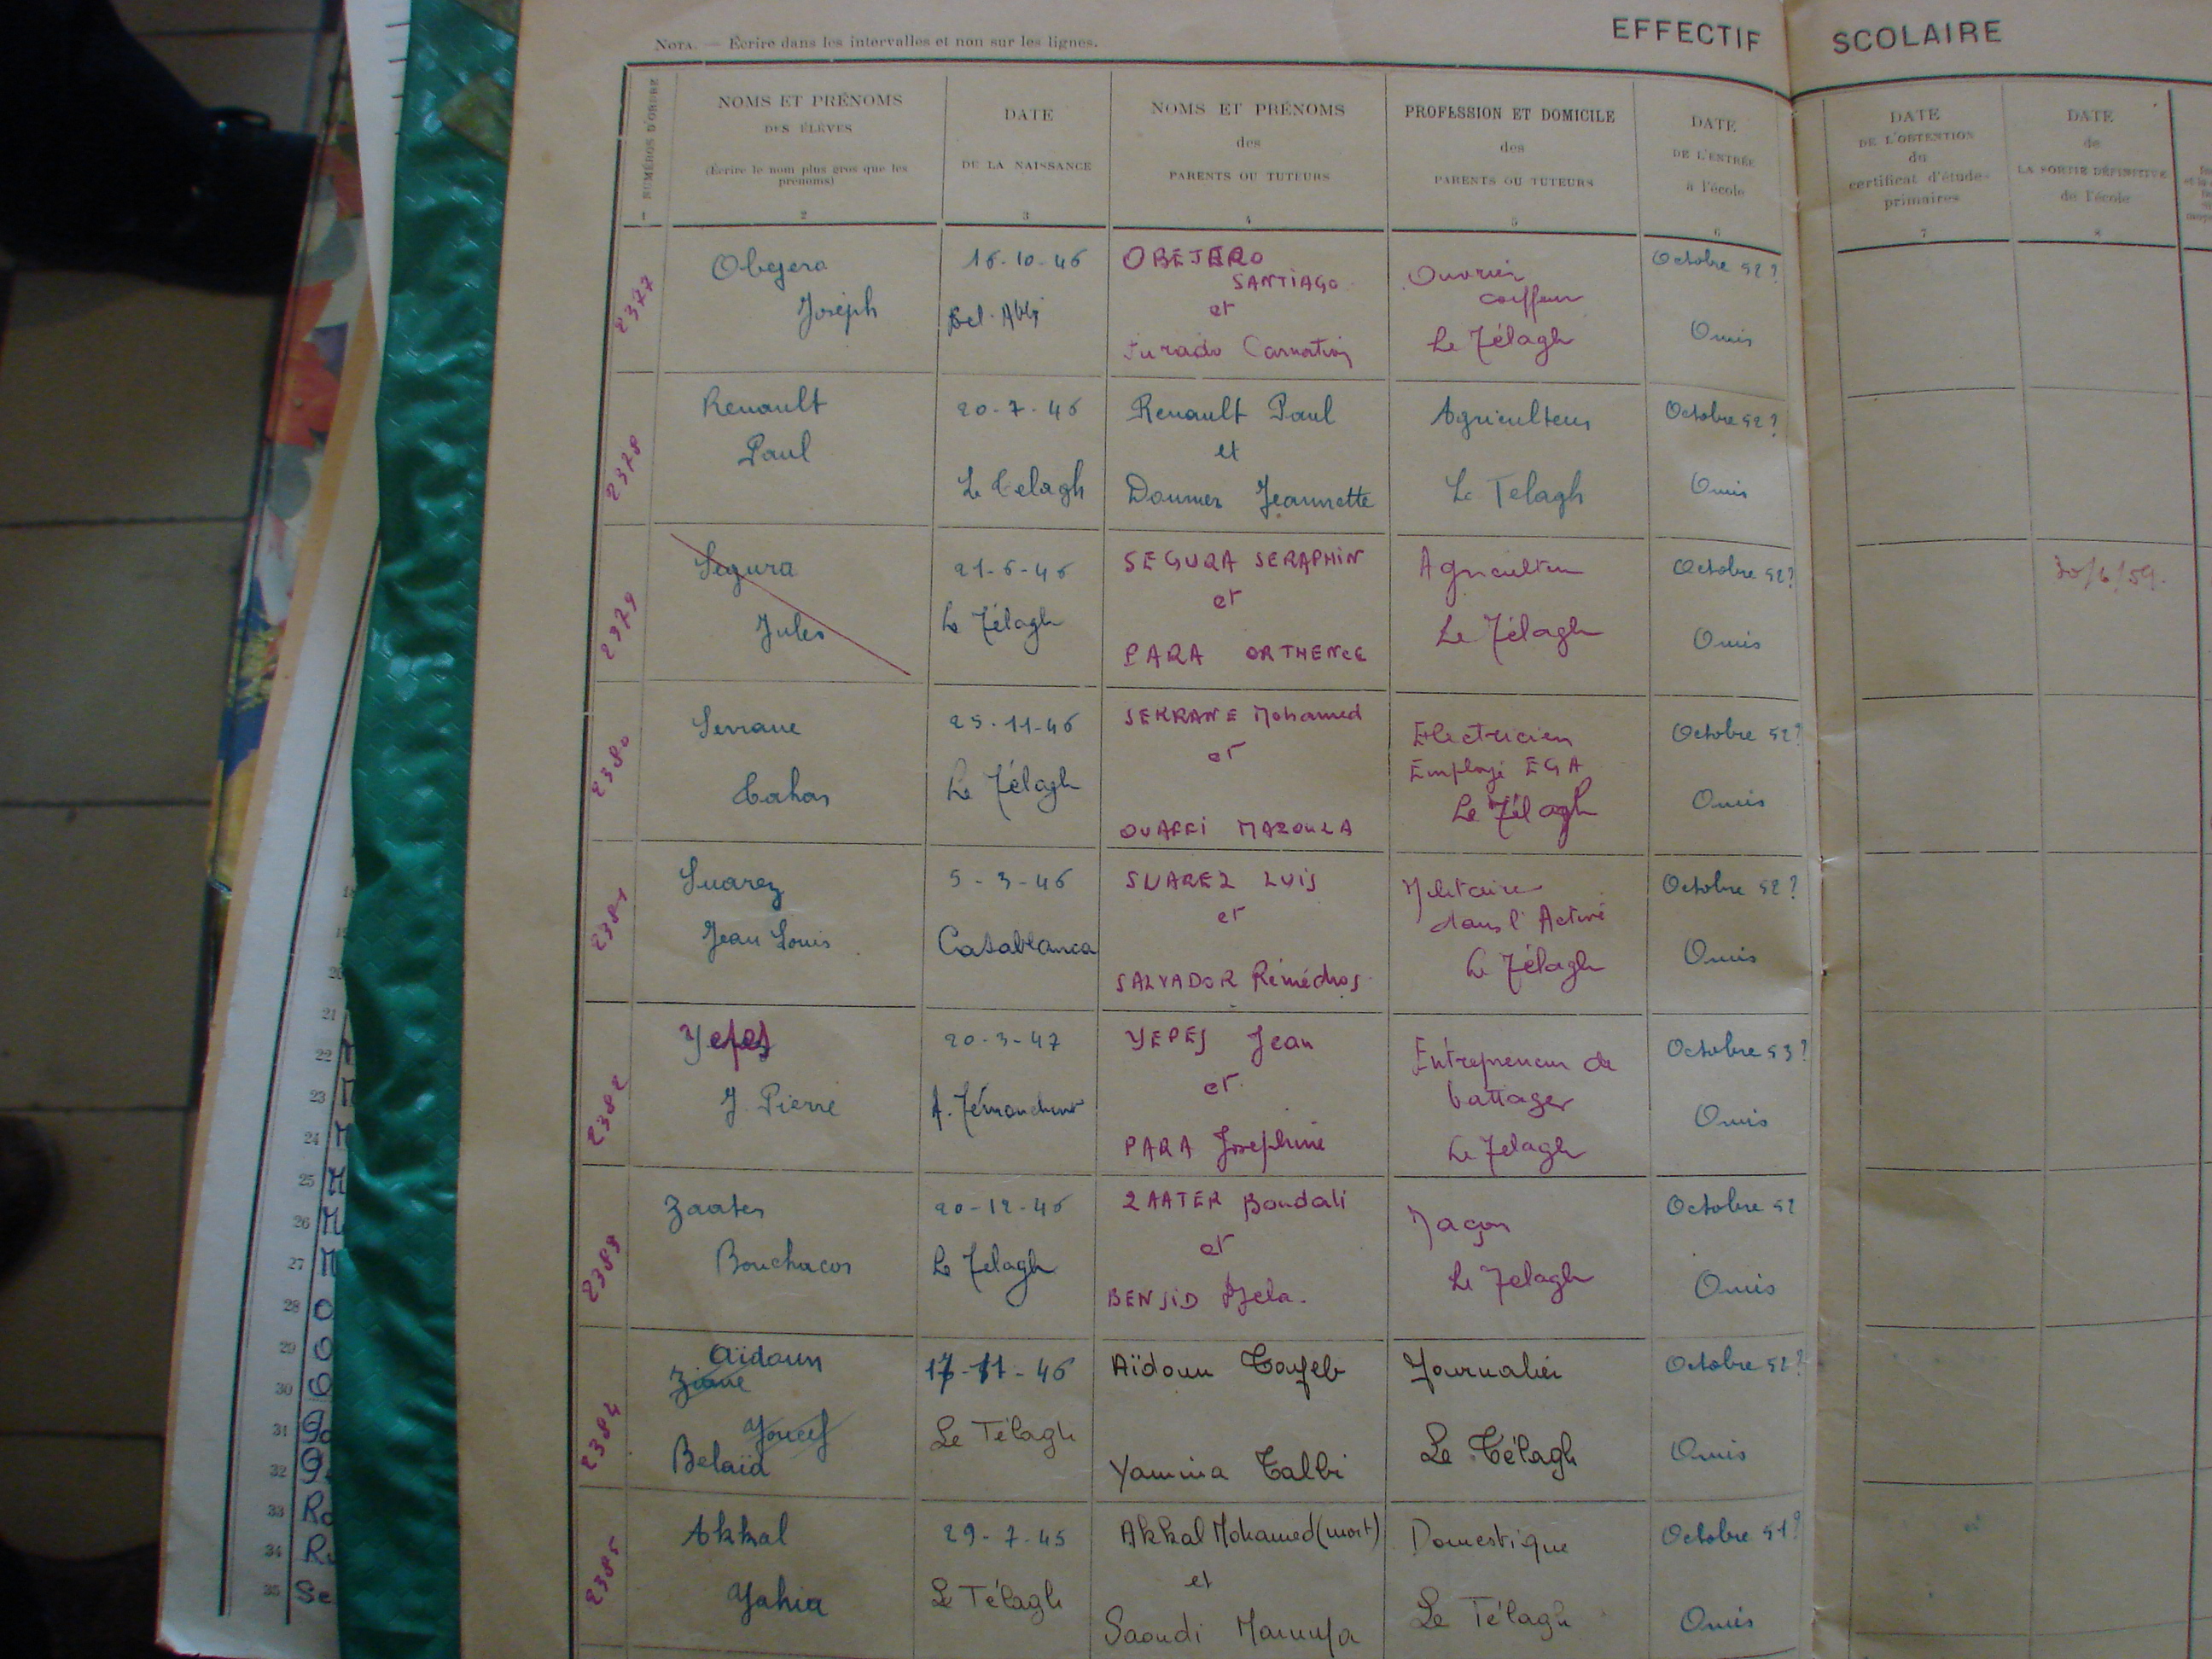 NOTA. — Écrire dans les intervalles et non sur les lignes.
EFFECTIF SCOLAIRE
NUMÉROS D'ORDRE
NOMS ET PRÉNOMS
DES ÉLÈVES
(Écrire le nom plus gros que les
prénoms)
DATE
DE LA NAISSANCE
NOMS ET PRÉNOMS
des
PARENTS OU TUTEURS
PROFESSION ET DOMICILE
des
PARENTS OU TUTEURS
DATE
DE L'ENTRÉE
à l'école
DATE
DE L'OBTENTION
du
certificat d'études
primaires
DATE
de
LA SORTIE DÉFINITIVE
de l'école
1 2 3 4 5 6 7 8
2377
Obejero
Joseph
16-10-46
Bel-Abbi
OBEJERO
SANTIAGO
et
Jurado
Ouvrier
coiffeur
Le Télagh
Octobre 52?
Omis
2378
Renault
Paul
20-7-46
Le Telagh
Renault Paul
et
Doumer Jeannette
Agriculteur
Le Telagh
Octobre 52?
Omis
2379
Segura
Jules
21-6-46
Le Télagh
SEGURA SERAPHIN
et
PARA ORTHENCE
Agriculteur
Le Télagh
Octobre 52?
Omis
30/6/59.
2380
Serrane
Lahas
25-11-46
Le Télagh
SERRANE Mohamed
et
OUAFFI MAZOUZA
Electricien
Employé EGA
Le Télagh
Octobre 52?
Omis
2381
Suarez
Jean Louis
5-3-46
Casablanca
SUAREZ LUIS
et
SALVADOR Rémédios
Militaire
dans l'Active
Le Télagh
Octobre 52?
Omis
2382
Yepes
J. Pierre
20-3-47
A. Témouchent
YEPES Jean
et
PARA Josephine
Entrepreneur de
battages
Le Telagh
Octobre 53?
Omis
2383
Zaater
Bouchacor
20-12-46
Le Telagh
ZAATER Boudali
et
BENSID
Maçon
Le Telagh
Octobre 52
Omis
2384
Aïdoun
Ziane
Youcef
Belaïd
17-11-46
Le Télagh
Aïdoun Tayeb
Yamina Talbi
Journalier
Le Télagh
Octobre 52?
Omis
2385
Akkal
Yahia
29-7-45
Le Télagh
Akkal Mohamed (mort)
et
Saoudi
Domestique
Le Télagh
Octobre 51?
Omis
21
22
23
24
25
26
27
28
29
30
31
32
33
34
35